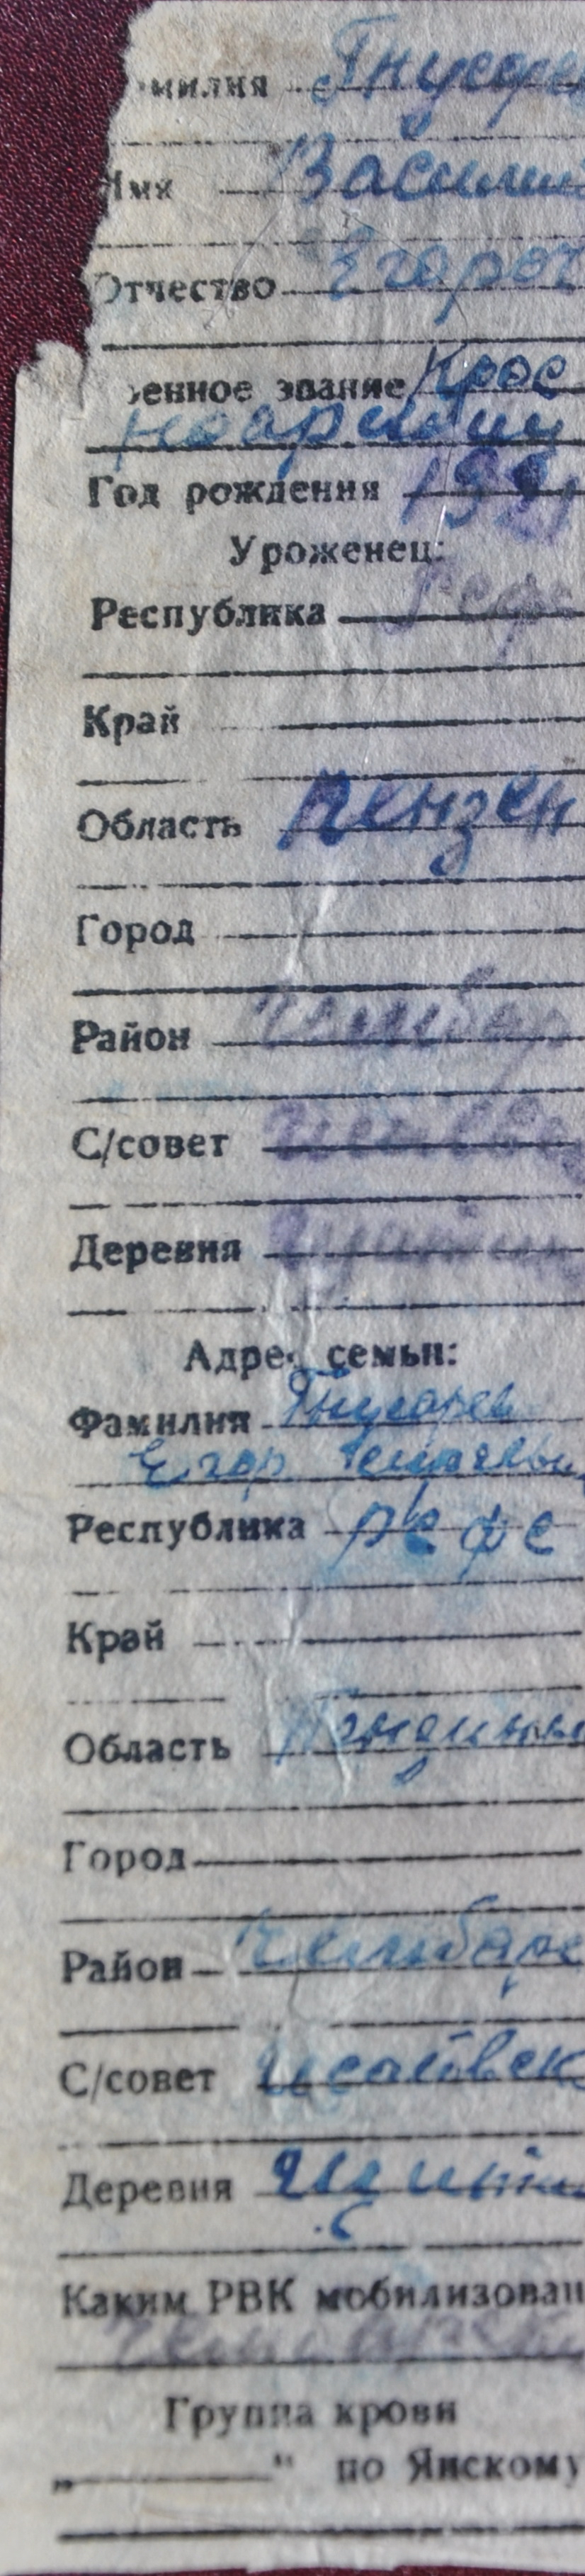 милия Гнусаре
Имя Васили
Отчество Егоро
енное звание Крас
ноармиец
Год рождения 192
Уроженец:
Республика Рсфс
Край
Область Пензен
Город
Район Чембар
С/совет
Деревня
Адрес семьи:
Фамилия Гнусарев
Егор
Республика РСФС
Край
Область
Город
Район Чембарс
С/совет Исаевск
Деревня
Каким РВК мобилизован
Группа крови
„ " по Янскому